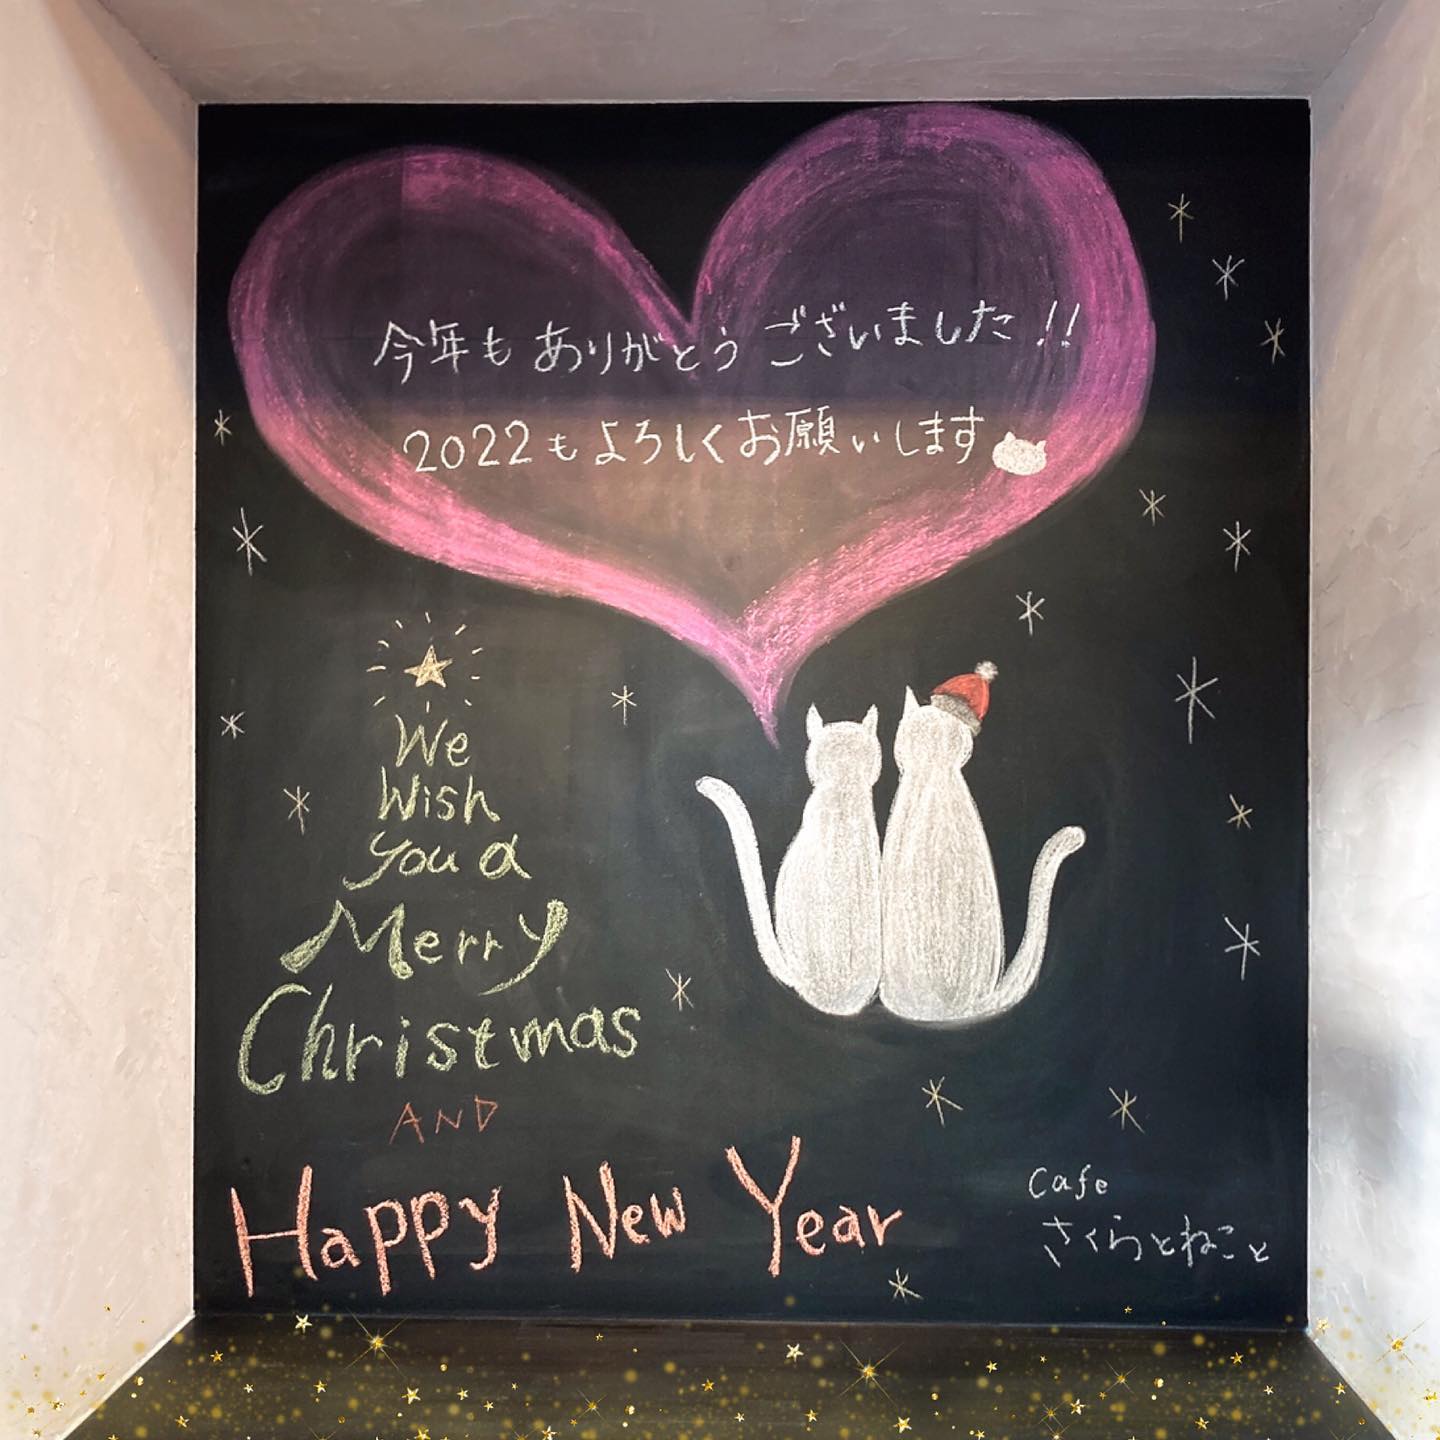 今年もありがとうございました!!
2022もよろしくお願いします
We
Wish
you a
Merry
Christmas
AND
Happy New Year
Cafe
さくらとねこと